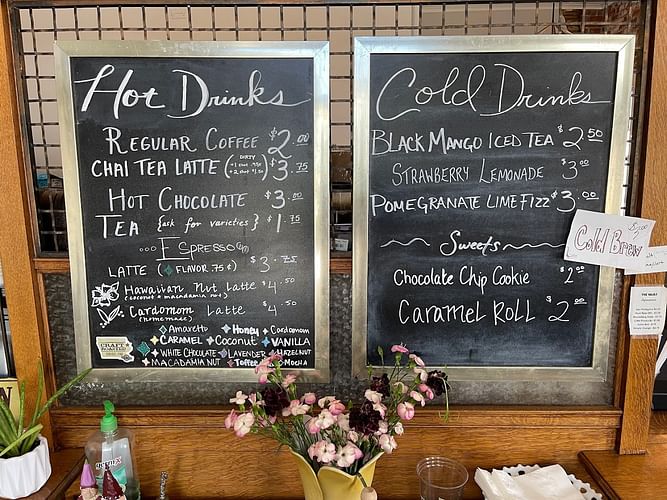 Hot Drinks
REGULAR COFFEE $2.00
CHAI TEA LATTE (DIRTY $3.75
HOT CHOCOLATE $3.00
TEA {ask for varieties} $1.75
ESPRESSO
LATTE (FLAVOR .75¢) $3.75
Hawaiian Nut Latte $4.50
(coconut & macadamia nut)
Cardomom Latte $4.50
(homemade)
Amaretto Honey Cardomom
CARAMEL Coconut VANILLA
WHITE CHOCOLATE LAVENDER HAZELNUT
MACADAMIA NUT Toffee Mocha
CRAFT ROASTED
Cold Drinks
BLACK MANGO ICED TEA $2.50
STRAWBERRY LEMONADE $3.00
POMEGRANATE LIME FIZZ $3.00
Sweets
Chocolate Chip Cookie $2.00
CARAMEL ROLL $2.00
Cold Brew